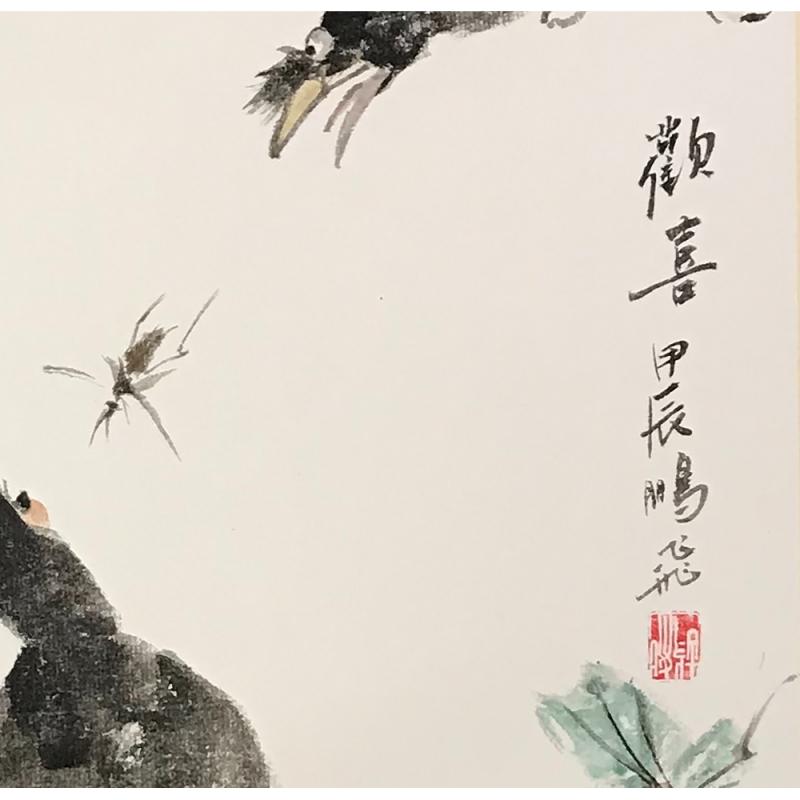 歡喜 甲辰鵬飛